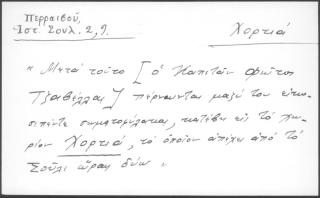 Περραιβού,
Ιστ. Σουλ. 2, 9.
Χορτιά
"Μετά τούτο [ὁ Καπιτάν Φώτος
Τζαβέλλας] πέρνωντας μαζύ του εἰκο-
σιπέντε σωματοφύλακας, κατέβη εἰς τό χω-
ρίον Χορτιά, τό ὁποῖον ἀπέχει ἀπό τό
Σούλι ὥρας δύω".